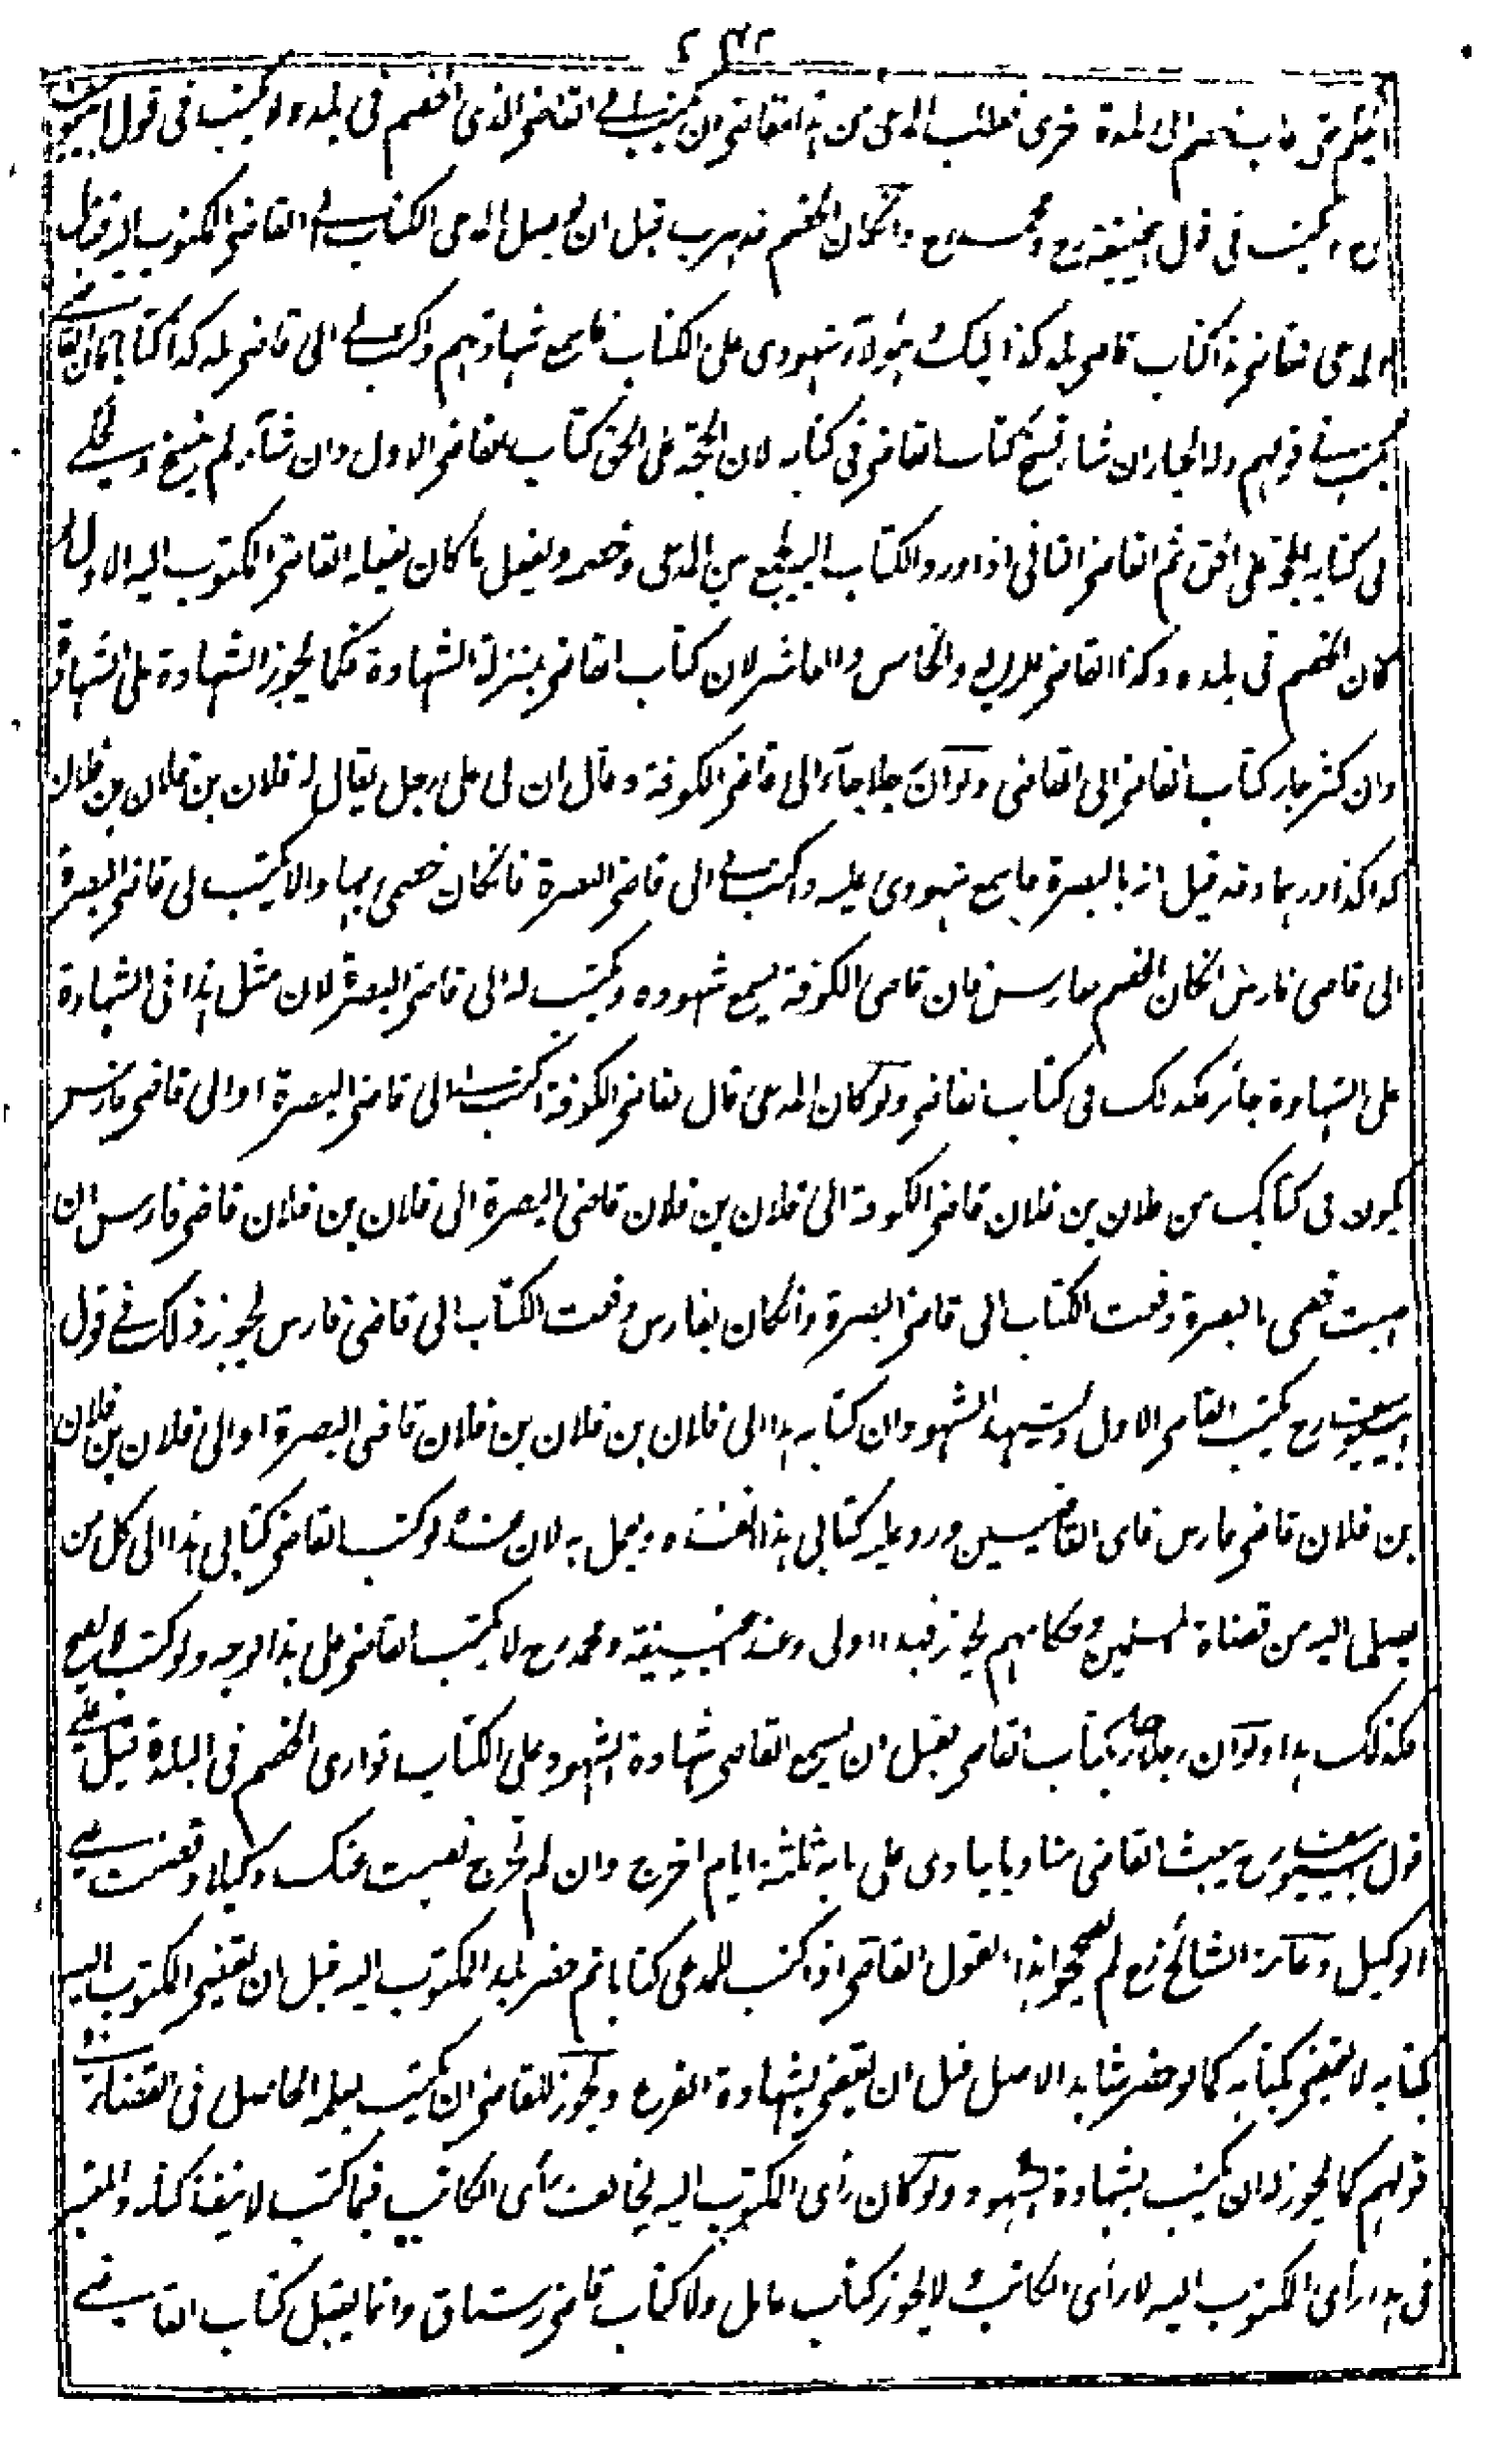 حتى غاب الخصم الى بلدة اخرى فطلب المدعى من هذا القاضى ان يكتب له الى القاضى الذى الخصم فى بلده لا يكتب فى قول ابى يوسف
رح ويكتب فى قول ابى حنيفة رح ومحمد رح وان كان الخصم قد هرب قبل ان يوصل المدعى الكتاب الى القاضى المكتوب اليه فقال
المدعى للقاضى هذا كتاب قاضى بلد كذا اليك وهؤلاء شهودى على الكتاب فاسمع شهادتهم واكتب لى الى قاضى بلد كذا كتابا فان القاضى
يكتب فى قولهم ولا الخيار ان شاء نسخ كتاب القاضى فى كتابه لان الحجة على الحق كتاب القاضى الاول وان شاء لم ينسخ ويحكى
فى كتابه الحجة على الحق ثم القاضى الثانى اذا ورد الكتاب اليه يجمع بين المدعى وخصمه ويفعل ما كان يفعله القاضى المكتوب اليه الاول لو
كان الخصم فى بلده وكذا القاضى الرابع والخامس والعاشر لان كتاب القاضى بمنزلة الشهادة فكما يجوز الشهادة على الشهادة
وان كثر جاز كتاب القاضى الى القاضى ولو ان رجلا جاء الى قاضى الكوفة وقال ان لى على رجل يقال له فلان بن فلان بن فلان
كذا كذا درهما وقد قيل انه بالبصرة فاسمع شهودى عليه واكتب لى الى قاضى البصرة فان كان خصمى بها والا يكتب لى قاضى البصرة
الى قاضى فارس ان كان الخصم بفارس فان قاضى الكوفة يسمع شهوده ويكتب له الى قاضى البصرة لان مثل هذا فى الشهادة
على الشهادة جائز فكذلك فى كتاب القاضى ولو كان المدعى قال لقاضى الكوفة اكتب لى الى قاضى البصرة او الى قاضى فارس
يكون فى كتابك من فلان بن فلان قاضى الكوفة الى فلان بن فلان قاضى البصرة الى فلان بن فلان قاضى فارس ان
اصبت خصمى بالبصرة دفعت الكتاب الى قاضى البصرة وان كان بفارس دفعت الكتاب الى قاضى فارس يجوز ذلك فى قول
ابى يوسف رح يكتب القاضى الاول ويشهد الشهود ان كتابه هذا الى فلان بن فلان بن فلان قاضى البصرة او الى فلان بن فلان
بن فلان قاضى فارس فاى القاضيين ورد عليه كتابى هذا انفذه ويعمل به لان عنده لو كتب القاضى كتابى هذا الى كل من
يصل اليه من قضاة المسلمين وحكامهم يجوز فهذا اولى وعند ابى حنيفة ومحمد رح لا يكتب القاضى على هذا الوجه ولو كتب لا يصح
فكذلك هذا ولو ان رجلا جاء بكتاب القاضى فقبل ان يسمع القاضى شهادة الشهود على الكتاب توارى الخصم فى البلدة قيل على
قول ابى يوسف رح يبعث القاضى مناديا ينادى على بابه ثلثة ايام اخرج وان لم تخرج نصبت عنك وكيلا وقضيت على
الوكيل وعامة المشائخ رح لم يصححوا هذا القول القاضى اذا كتب للمدعى كتابا ثم حضر بلد المكتوب اليه قبل ان يقضى المكتوب اليه
بكتابه لا يقضى بكتابه كما لو حضر شاهد الاصل قبل ان يقضى بشهادة الفرع ويجوز للقاضى ان يكتب بعلمه الحاصل فى القضاء فى
قولهم كما يجوز له ان يكتب بشهادة الشهود ولو كان رأى المكتوب اليه يخالف رأى الكاتب فيما كتب لا ينفذ كتابه والمعتبر
فى هذا رأى المكتوب اليه لا رأى الكاتب ولا يجوز كتاب عامل ولا كتاب قاضى رستاق وانما يقبل كتاب القاضى